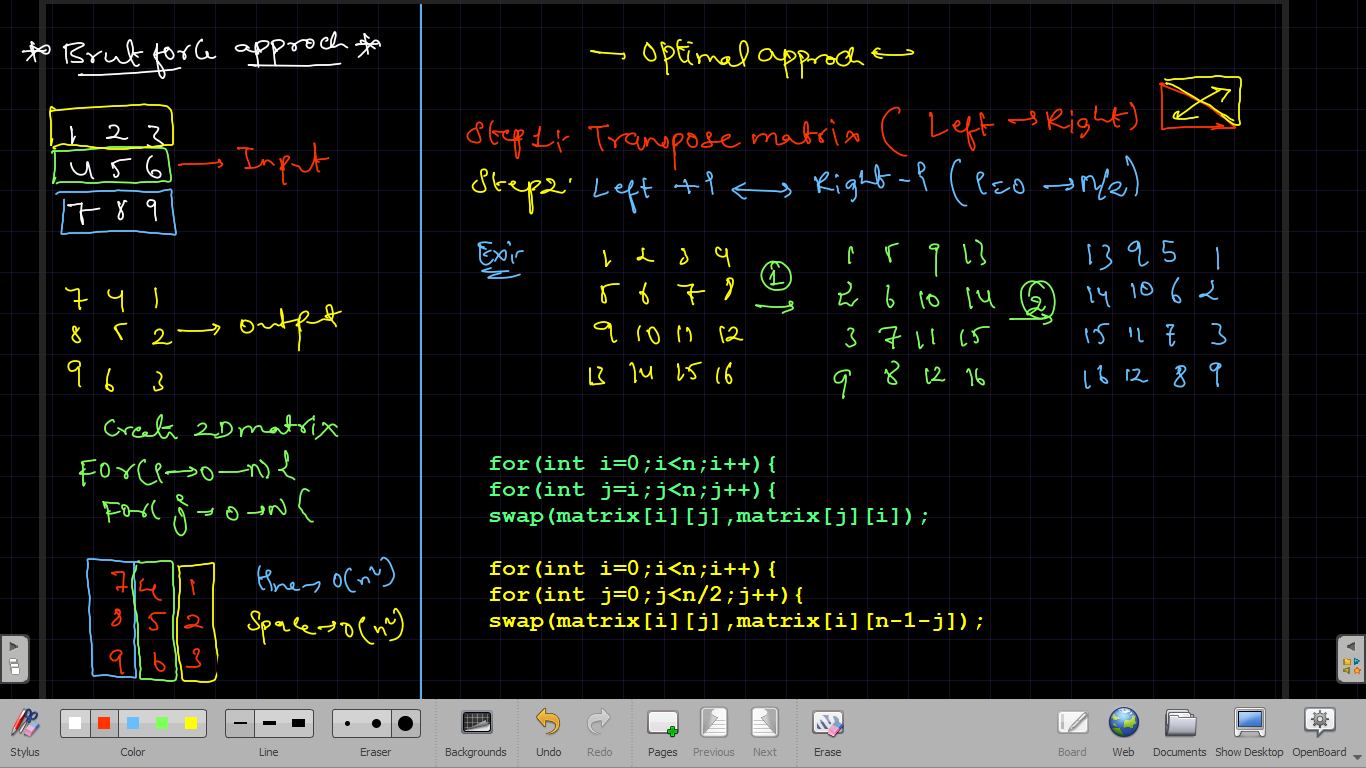 * Brut force approch *
1 2 3
4 5 6 → Input
7 8 9
7 4 1
8 5 2 → output
9 6 3
Create 2D matrix
For(i→0—n){
For( j→0→n{
7 4 1
8 5 2
9 6 3
time→ O(n²)
Space→ O(n²)
— Optimal approch ←→
Step1: Transpose matrix ( Left → Right)
Step2: Left + i ←→ Right - i (i=0 → n/2)
Ex:-
1 2 3 4
5 6 7 8
9 10 11 12
13 14 15 16
① →
1 5 9 13
2 6 10 14
3 7 11 15
9 8 12 16
② →
13 9 5 1
14 10 6 2
15 11 7 3
16 12 8 9
for(int i=0;i<n;i++){
for(int j=i;j<n;j++){
swap(matrix[i][j],matrix[j][i]);
for(int i=0;i<n;i++){
for(int j=0;j<n/2;j++){
swap(matrix[i][j],matrix[i][n-1-j]);
Stylus Color Line Eraser Backgrounds Undo Redo Pages Previous Next Erase Board Web Documents Show Desktop OpenBoard